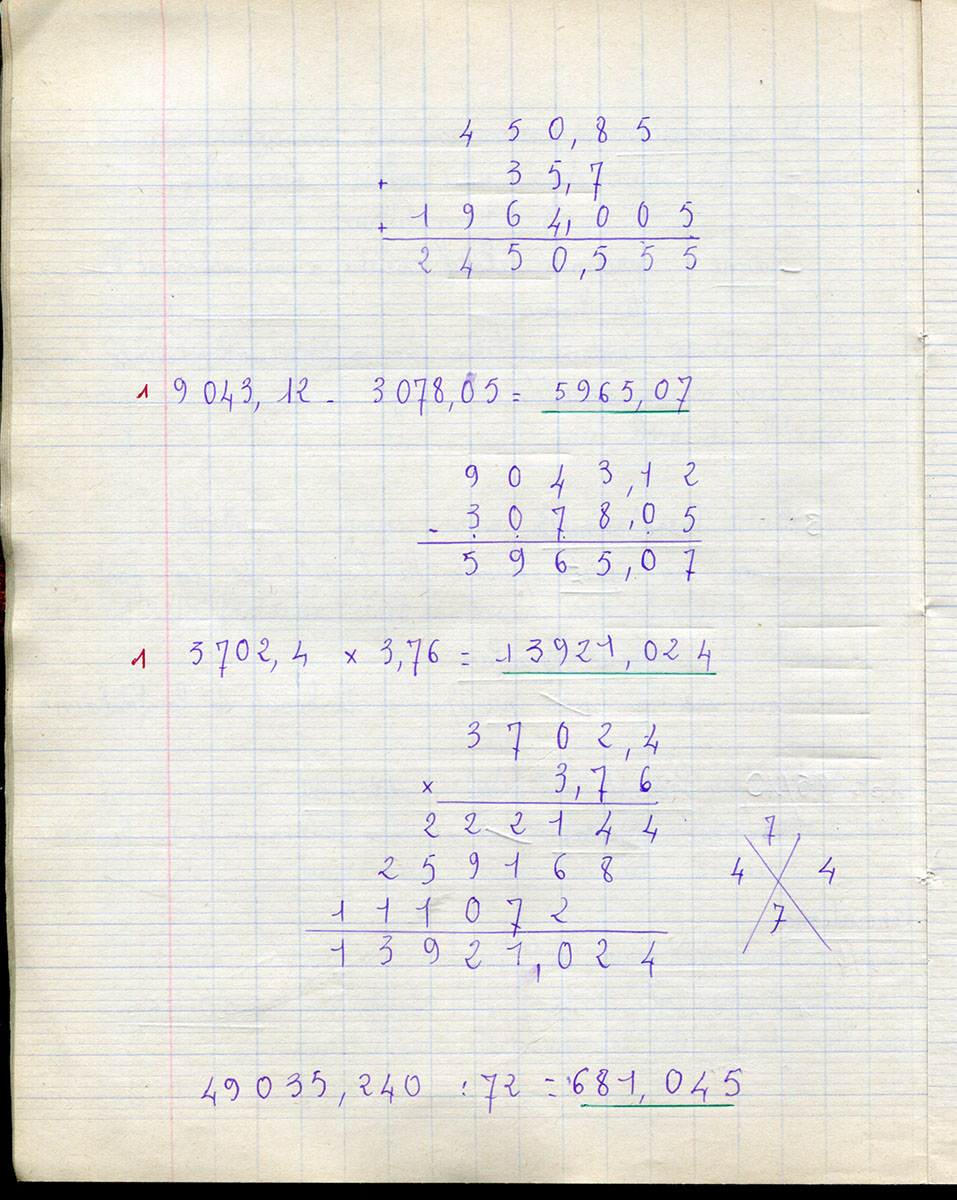 4 5 0, 8 5
+ 3 5, 7
+ 1 9 6 4, 0 0 5
2 4 5 0, 5 5 5
1 9 043, 12 - 3 078, 05 = 5965, 07
9 0 4 3, 1 2
- 3 0 7 8, 0 5
5 9 6 5, 0 7
1 3702, 4 × 3,76 = 13921, 024
3 7 0 2, 4
× 3, 7 6
2 2 2 1 4 4
2 5 9 1 6 8
1 1 1 0 7 2
1 3 9 2 1, 0 2 4
7
4 4
7
49 035, 240 : 72 = 681, 045